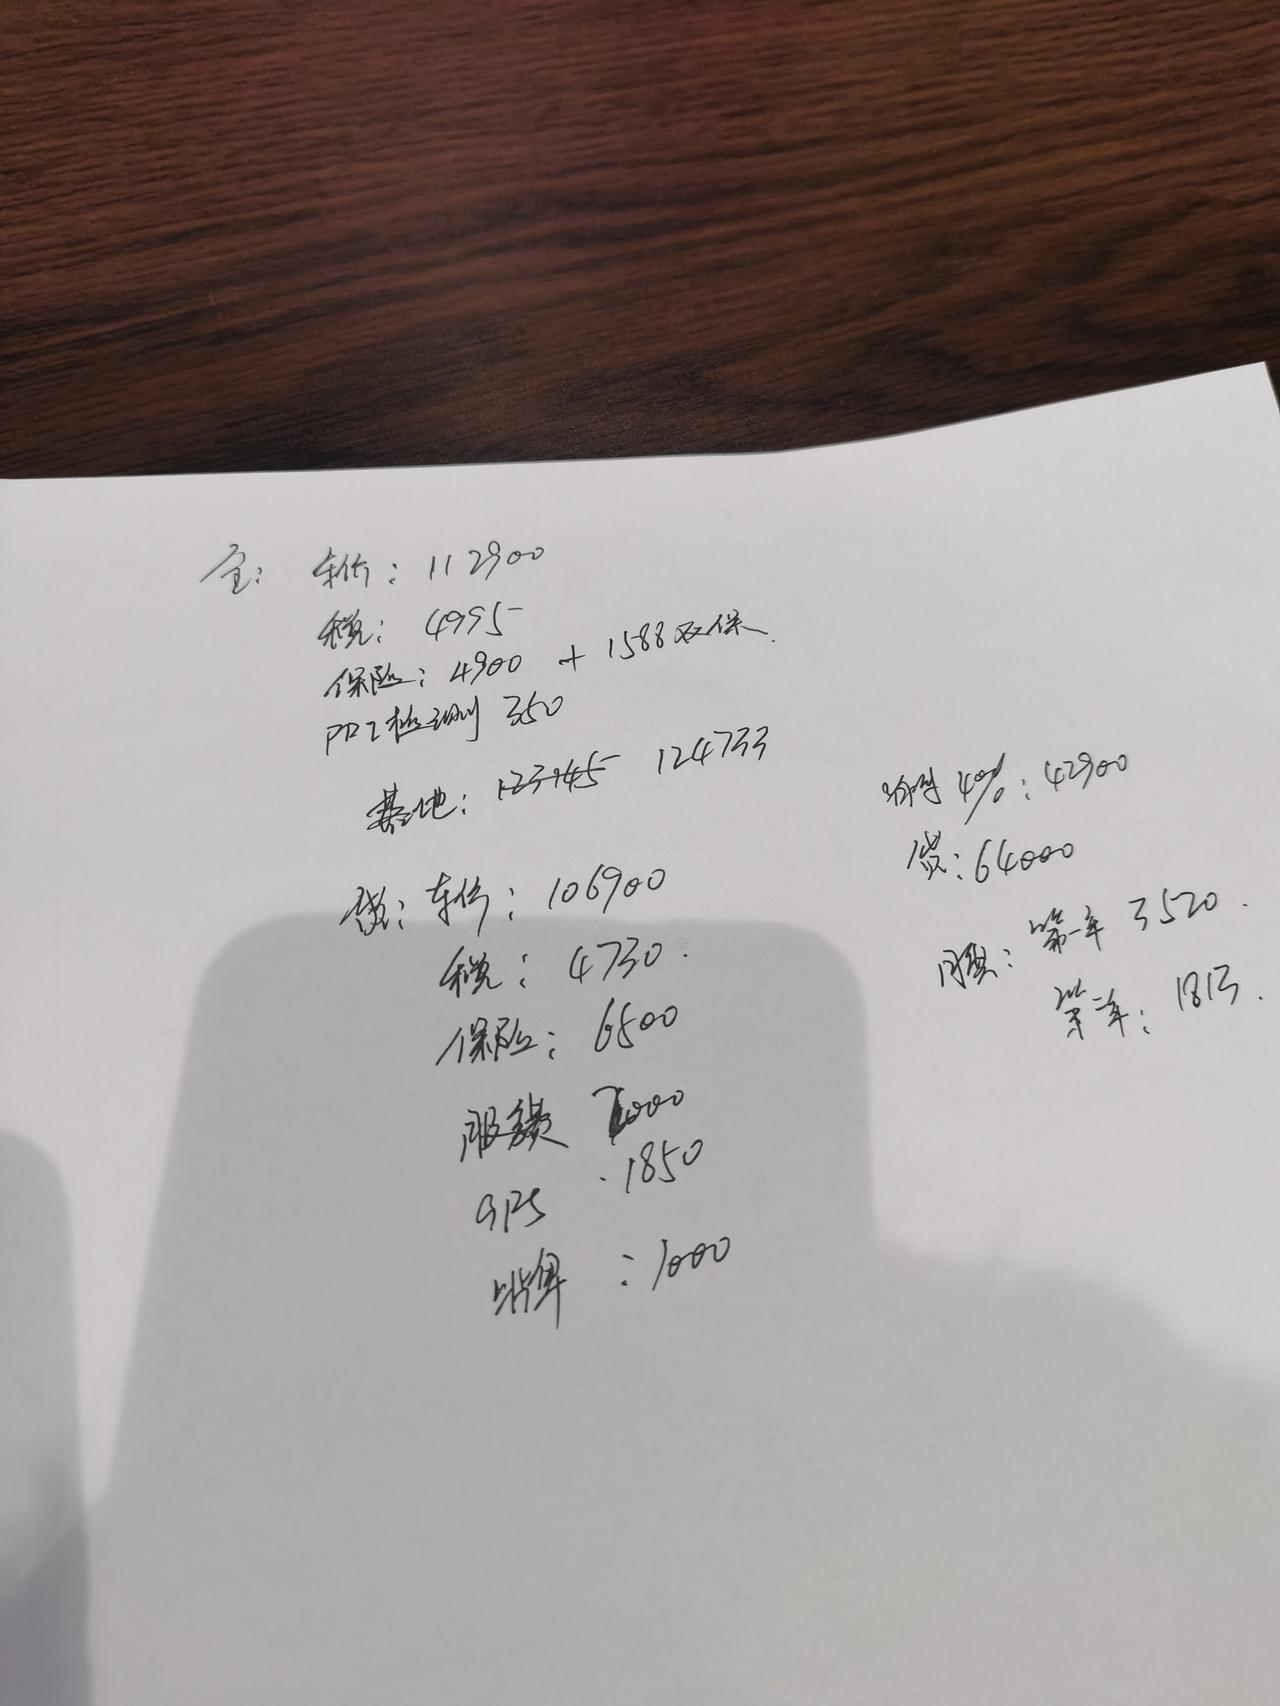 全: 车价: 112900
税: 4995
保险: 4900 + 1588双保.
PDI检测 350
落地: 123145 124733
贷: 车价: 106900
税: 4730.
保险: 6500
服务费 2000
GPS .1850
上牌 : 1000
首付40%: 42900
贷: 64000
月供: 第一年 3520.
第二年: 1813.